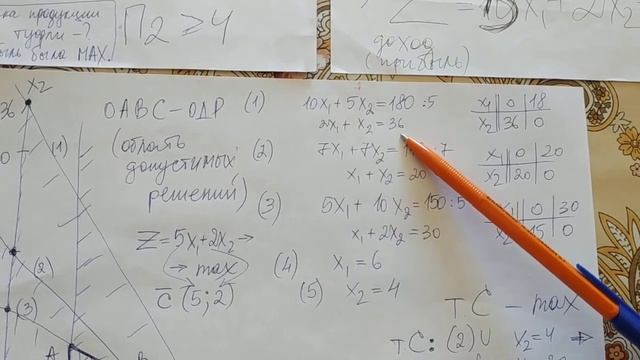 ка продукции
туфли - ?
ыль была MAX.
П2 ≥ 4
Z = 5x₁ + 2x₂
доход
(прибыль)
x₂
36
OABC - ОДР
(область
допустимых
решений)
Z = 5x₁ + 2x₂ →
→ max
c̄ (5; 2)
(1)
(2)
(3)
A
B
(1) 10x₁ + 5x₂ = 180 :5
2x₁ + x₂ = 36
(2) 7x₁ + 7x₂ = 1 :7
x₁ + x₂ = 20
(3) 5x₁ + 10x₂ = 150 :5
x₁ + 2x₂ = 30
(4) x₁ = 6
(5) x₂ = 4
x₁ 0 18
x₂ 36 0
x₁ 0 20
x₂ 20 0
x₁ 0 30
x₂ 15 0
т. C - max
т C: (2) U x₂ = 4 ⇒